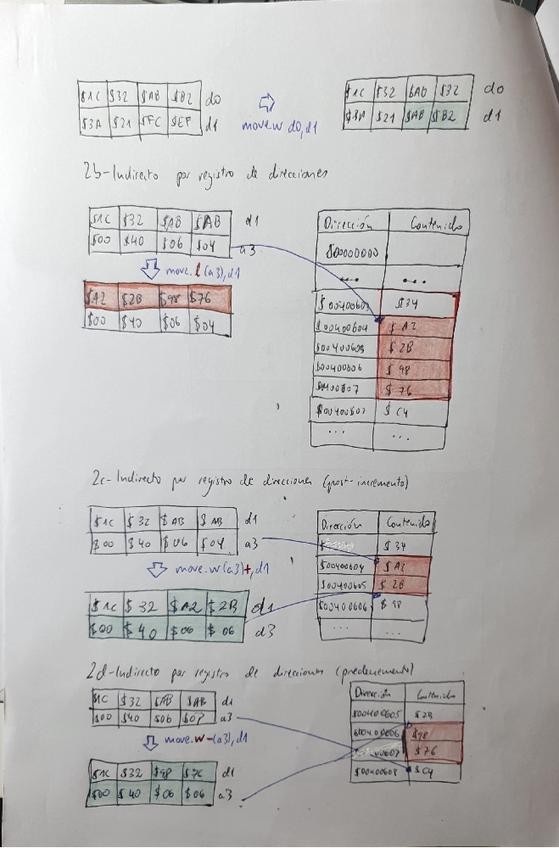 $1C $32 $AB $B2 d0
$3A $21 $FC $EF d1
move.w d0,d1
$1C $32 $AB $32 d0
$3A $21 $AB $B2 d1
2b-Indirecto por registro de direcciones
$1C $32 $AB $AB d1
$00 $40 $06 $04 a3
move.l (a3),d1
$A2 $2B $98 $76
$00 $40 $06 $04
Dirección Contenido
$00000000
... ...
$00400603 $34
$00400604 $A2
$00400605 $2B
$00400606 $98
$00400607 $76
$00400607 $C4
... ...
2c-Indirecto por registro de direcciones (post-incremento)
$1C $32 $AB $AB d1
$00 $40 $06 $04 a3
move.w(a3)+,d1
$1C $32 $A2 $2B d1
$00 $40 $06 $06 d3
Dirección Contenido
$34
$00400604 $A2
$00400605 $2B
$00400606 $98
... ...
2d-Indirecto por registro de direcciones (predecremento)
$1C $32 $AB $AB d1
$00 $40 $06 a3
move.w-(a3),d1
$1C $32 $98 d1
$00 $40 $06 $06 a3
Dirección Contenido
$00400605 $2B
$00400606 $98
$76
$00400608 $C4